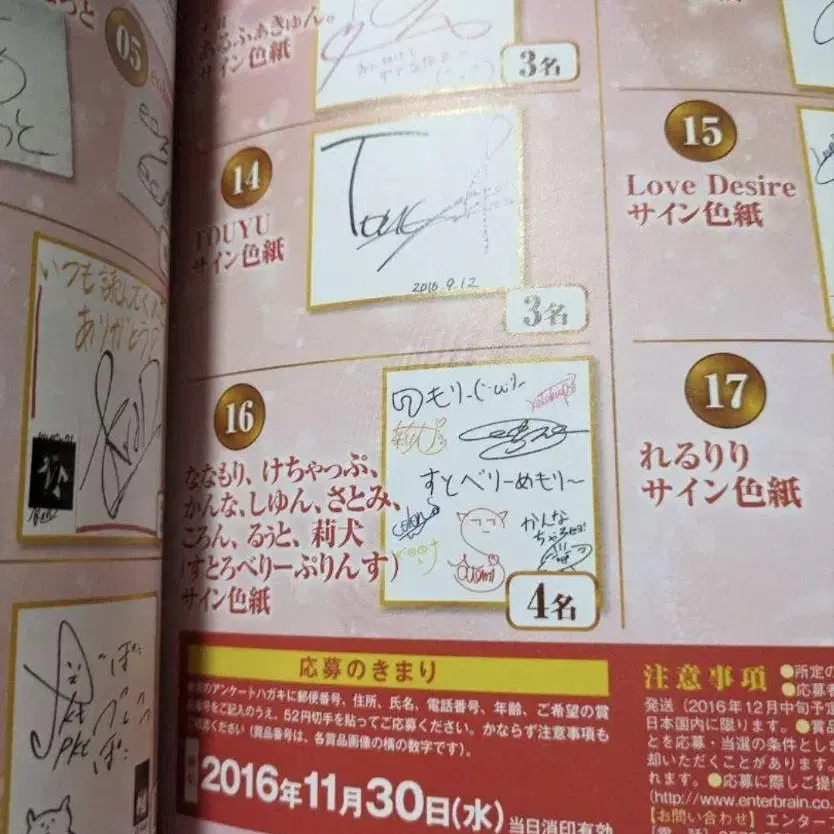 05
あるふぁきゅん。
サイン色紙
3名
14
TOUYU
サイン色紙
2016.9.12
3名
15
Love Desire
サイン色紙
いつも読んでくれて
ありがとう
16
ななもり、けちゃっぷ、
かんな、しゆん、さとみ、
ころん、るぅと、莉犬
(すとろべりーぷりんす)
サイン色紙
すとべりーめもり〜
かんな
4名
17
れるりり
サイン色紙
応募のきまり
所定のアンケートハガキに郵便番号、住所、氏名、電話番号、年齢、ご希望の賞
品番号をご記入のうえ、52円切手を貼ってご応募ください。かならず注意事項も
ご確認ください(賞品番号は、各賞品画像の横の数字です)。
2016年11月30日(水) 当日消印有効
注意事項 ●所定の
●応募
発送(2016年12月中旬予
日本国内に限ります。●
とを応募・当選の条件とし
却いただくことがあります。
れます。●応募に際しご提
(http://www.enterbrain.co
【お問い合わせ】エンター